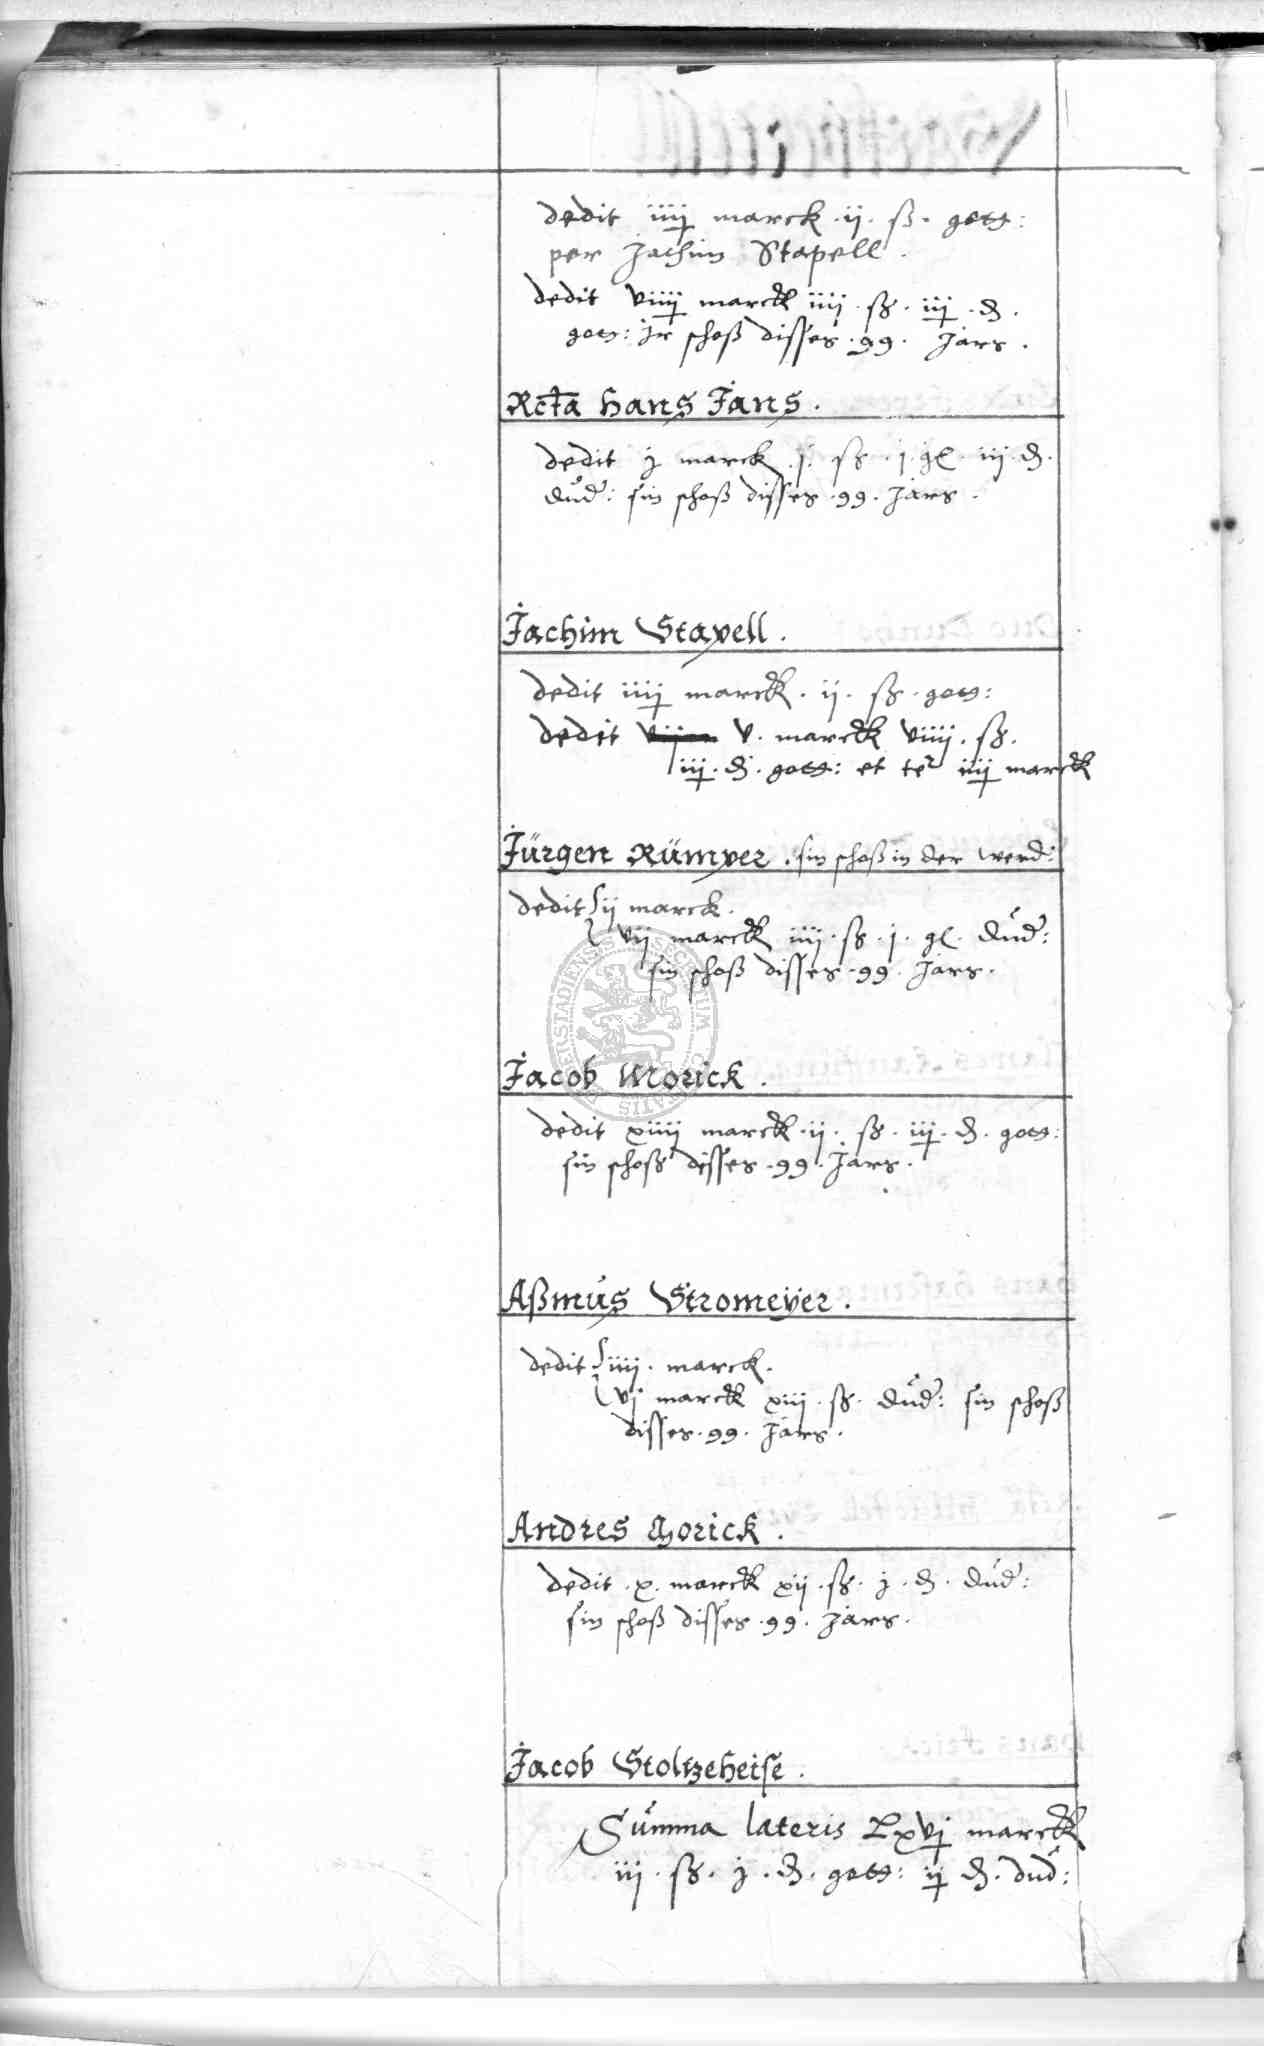 dedit iiij marck .ij. ß. gott:
per Jachim Stapell.
dedit viiij marck iiij. ß. iij. ₰.
gott: jr schoß disses .99. Jars.
Rcta Hans Jans.
dedit j marck .j. ß .j. gl. iij. ₰.
dud: sin schoß disses .99. Jars.
Jachim Stapell.
dedit iiij marck. ij. ß. gott:
dedit v. marck viiij. ß.
iij. ₰. gott: et ter iiij marck
Jürgen Rümper. sin schoß in der werd:
dedit ij marck.
vij marck iiij. ß. j. gl. dud:
sin schoß disses .99. Jars.
Jacob Morick.
dedit xiiij marck .ij. ß. iij. ₰. gott:
sin schoß disses .99. Jars.
Aßmus Stromeyer.
dedit iiij. marck.
vj marck xiij. ß. dud: sin schoß
disses .99. Jars.
Andres Morick.
dedit .x. marck xij. ß. j. ₰. dud:
sin schoß disses .99. Jars.
Jacob Stoltzeheise.
Summa lateris Lxvj marck
iij. ß. j. ₰. gott: ij ₰. dud: